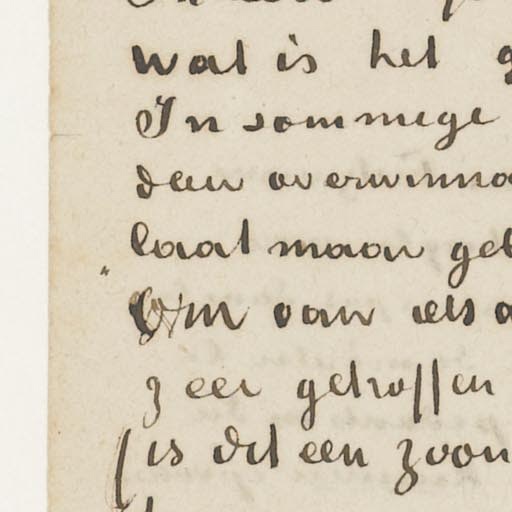 wat is het
In sommige
dan overwinna
laat maar gel
Om van iets a
zeer getroffen
is dit een zoon